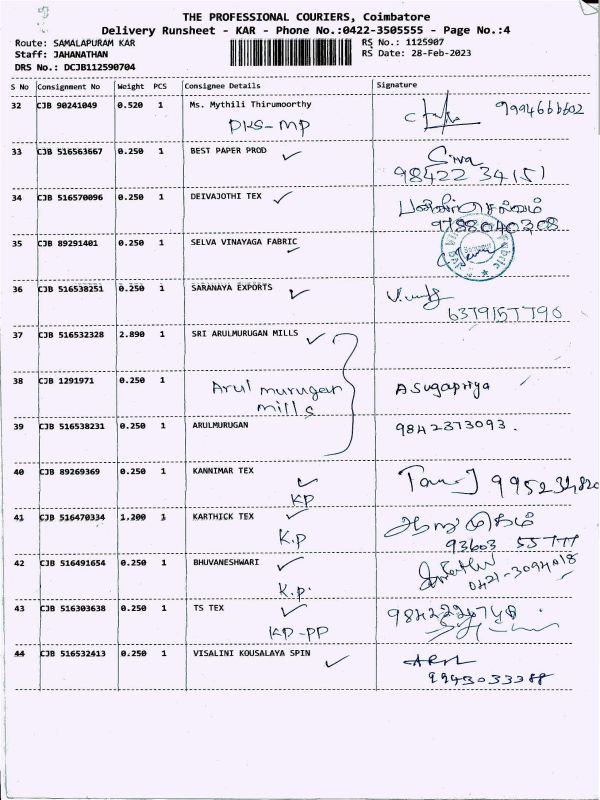 THE PROFESSIONAL COURIERS, Coimbatore
Delivery Runsheet - KAR - Phone No.:0422-3505555 - Page No.:4
Route: SAMALAPURAM KAR RS No.: 1125907
Staff: JAHANATHAN RS Date: 28-Feb-2023
DRS No.: DCJB112590704
S No Consignment No Weight PCS Consignee Details Signature
32 CJB 90241049 0.520 1 Ms. Mythili Thirumoorthy 9994666602
PKS-MP
33 CJB 516563667 0.250 1 BEST PAPER PROD Siva
98422 34151
34 CJB 516570096 0.250 1 DEIVAJOTHI TEX பன்னீர் செல்வம்
9788040308
35 CJB 89291401 0.250 1 SELVA VINAYAGA FABRIC
36 CJB 516538251 0.250 1 SARANAYA EXPORTS
6379157790
37 CJB 516532328 2.890 1 SRI ARULMURUGAN MILLS
38 CJB 1291971 0.250 1 Arul murugan A Sugapriya
mills
39 CJB 516538231 0.250 1 ARULMURUGAN 9842373093.
40 CJB 89269369 0.250 1 KANNIMAR TEX
KP
41 CJB 516470334 1.200 1 KARTHICK TEX ஆறுமுகம்
K.P 93603 55777
42 CJB 516491654 0.250 1 BHUVANESHWARI
K.P. 0421-3094018
43 CJB 516303638 0.250 1 TS TEX
KP-PP
44 CJB 516532413 0.250 1 VISALINI KOUSALAYA SPIN
9943033288